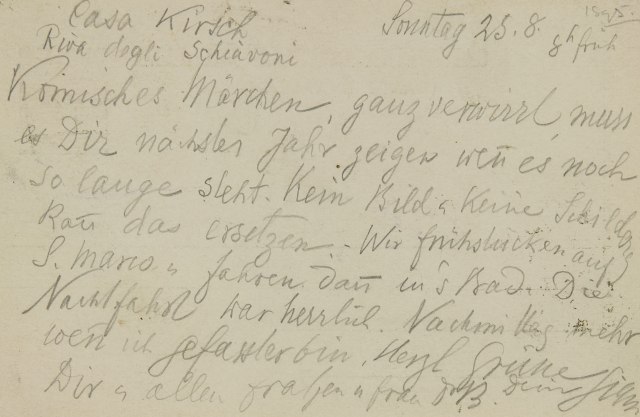 Casa Kirsch
Riva degli Schiavoni
Sonntag 25. 8. 1895.
8h früh
Komisches Märchen, ganz verwirrt, muss
es Dir nächstes Jahr zeigen, weñ es noch
so lange steht. Kein Bild u keine Schilderg
kañ das ersetzen. - Wir frühstücken auf
S. Marco u fahren dañ in's Bad. Die
Nachtfahrt war herrlich. Nachmittag mehr
weñ ich gefasster bin. Herzl Grüsse
Dir u allen u Frau Dein